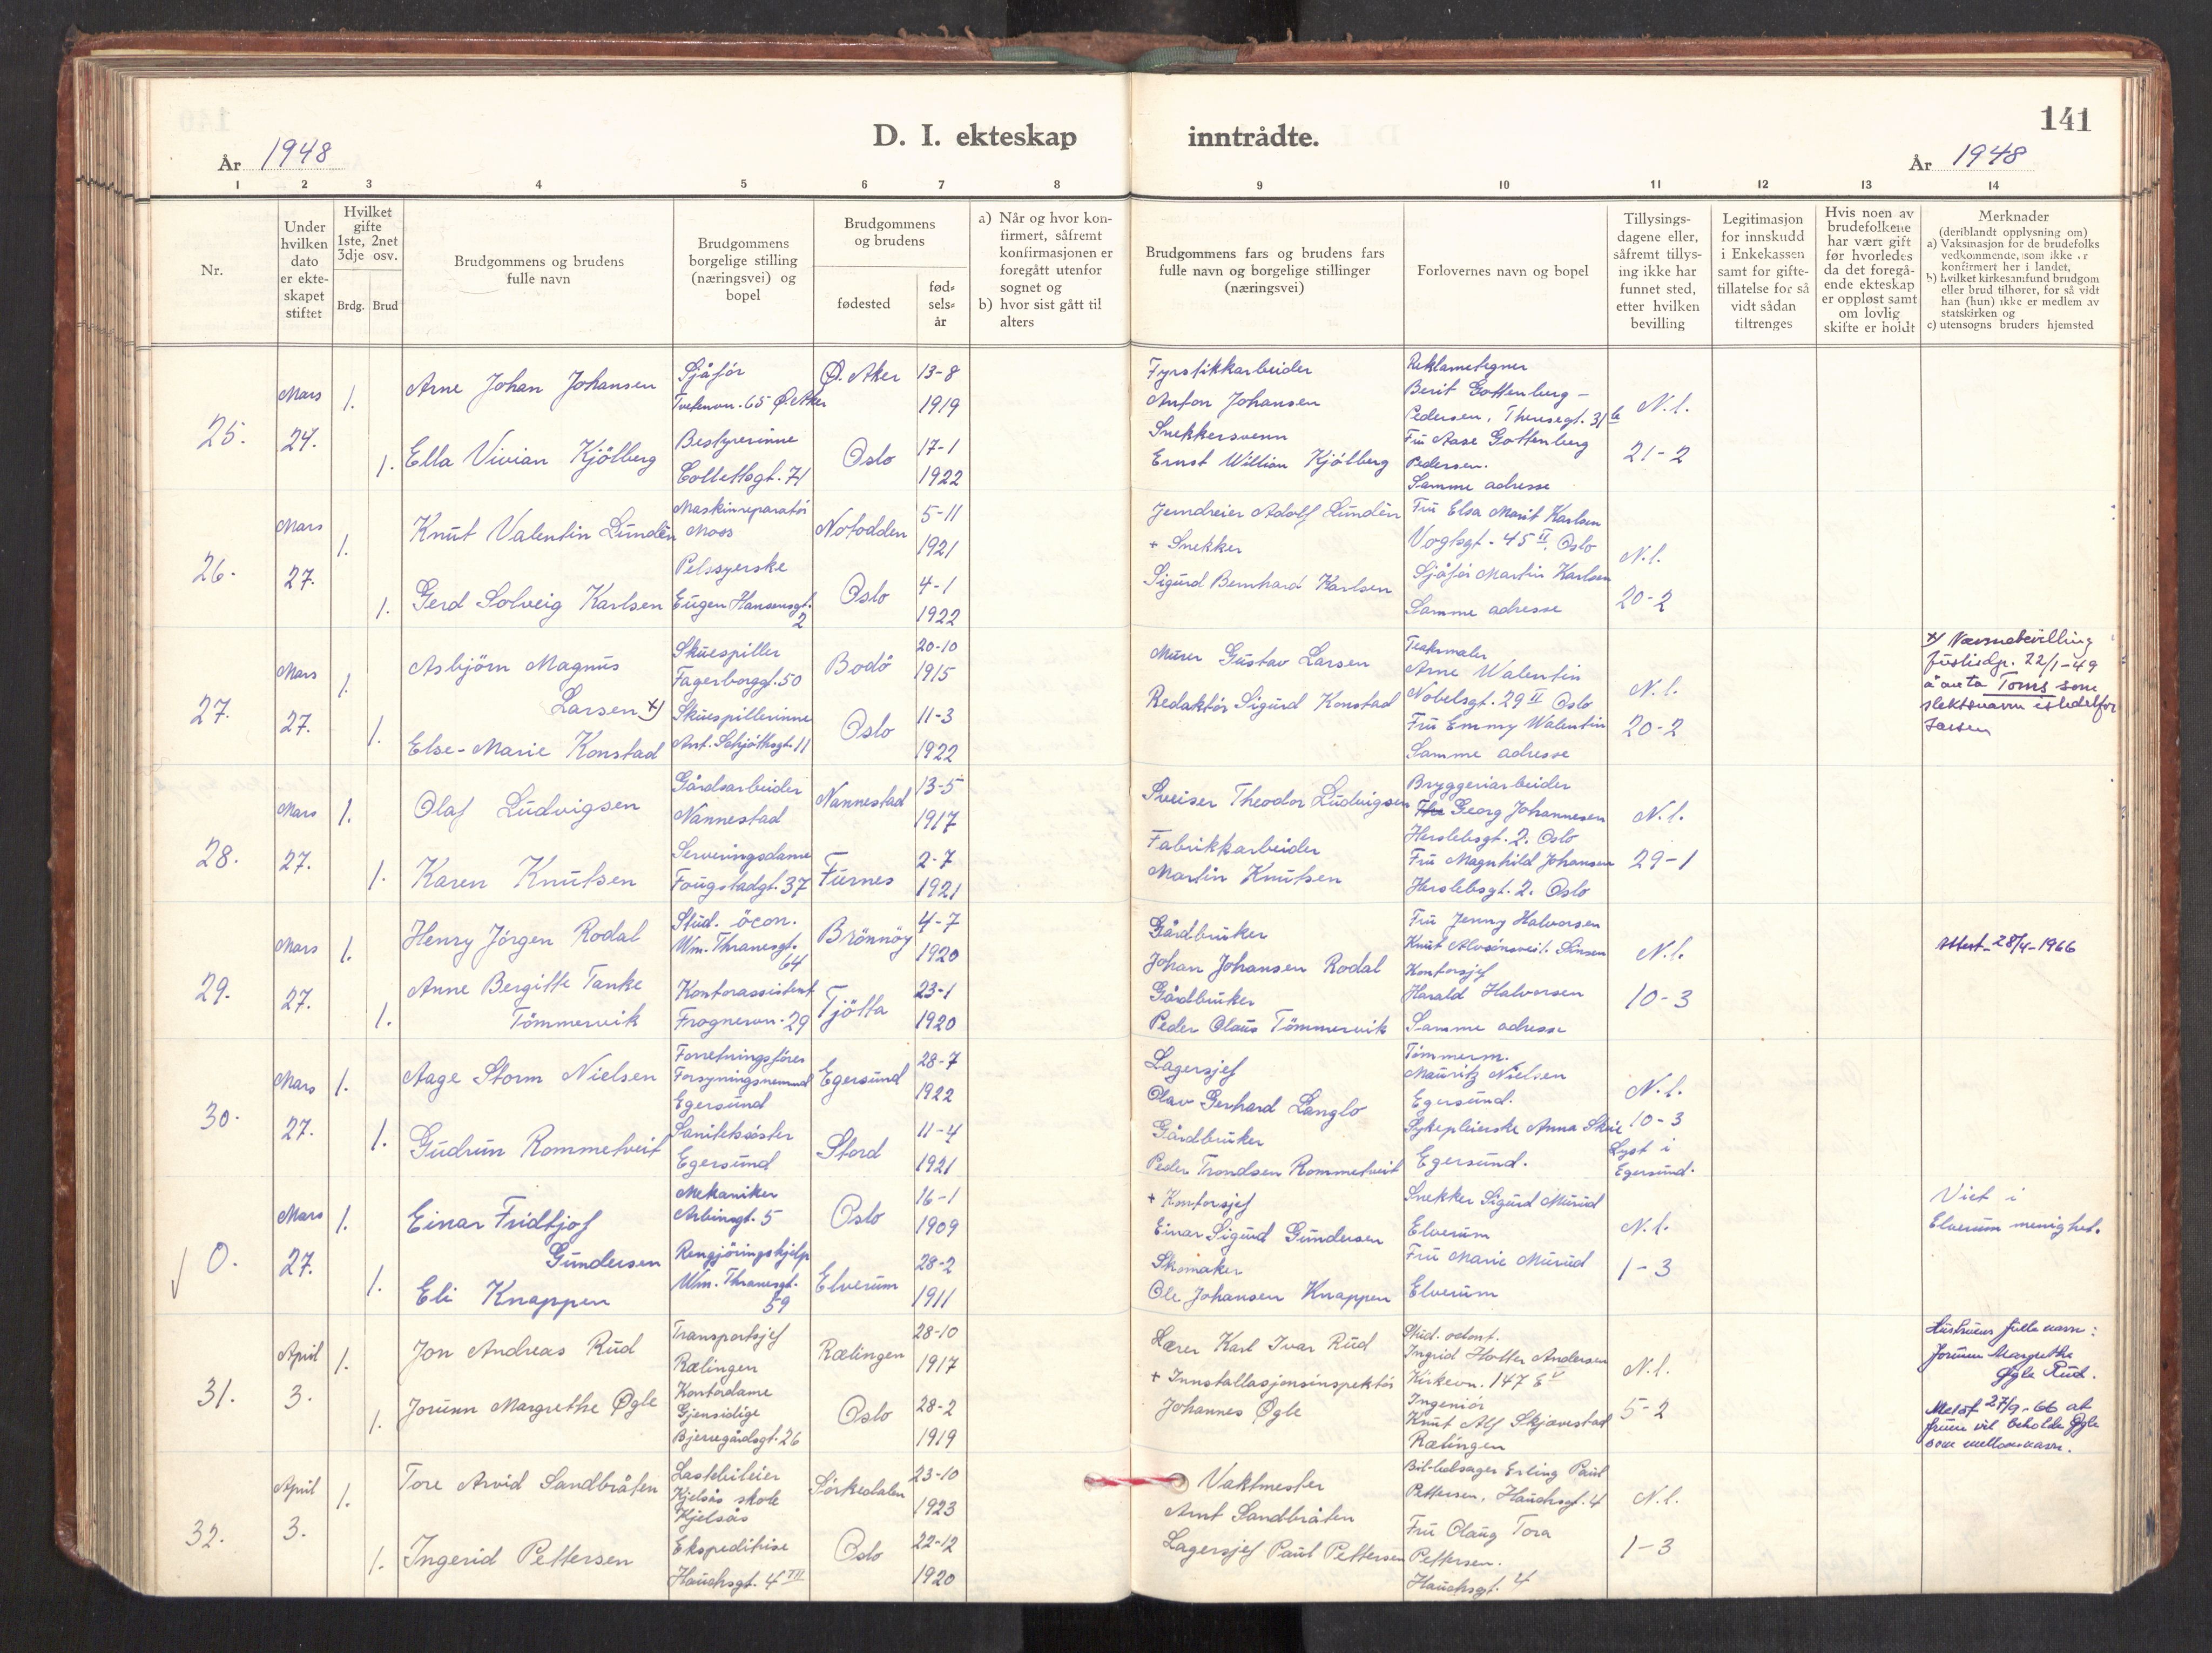 141
D. I. ekteskap inntrådte.
År 1948
År 1948
1 2 3 4 5 6 7 8 9 10 11 12 13 14
Nr.
Under
hvilken
dato
er ekte-
skapet
stiftet
Hvilket
gifte
1ste, 2net
3dje osv.
Brdg. Brud
Brudgommens og brudens
fulle navn
Brudgommens
borgelige stilling
(næringsvei) og
bopel
Brudgommens
og brudens
fødested
fød-
sels-
år
a) Når og hvor kon-
firmert, såfremt
konfirmasjonen er
foregått utenfor
sognet og
b) hvor sist gått til
alters
Brudgommens fars og brudens fars
fulle navn og borgelige stillinger
(næringsvei)
Forlovernes navn og bopel
Tillysings-
dagene eller,
såfremt tillys-
ing ikke har
funnet sted,
etter hvilken
bevilling
Legitimasjon
for innskudd
i Enkekassen
samt for gifte-
tillatelse for så
vidt sådan
tiltrenges
Hvis noen av
brudefolkene
har vært gift
før hvorledes
da det foregå-
ende ekteskap
er oppløst samt
om lovlig
skifte er holdt
Merknader
(deriblandt opplysning om)
a) Vaksinasjon for de brudefolks
vedkommende, som ikke er
konfirmert her i landet,
b) hvilket kirkesamfund brudgom
eller brud tilhører, for så vidt
han (hun) ikke er medlem av
statskirken og
c) utensogns bruders hjemsted
25.
Mars
24.
1.
1.
Arne Johan Johansen
Ella Vivian Kjölberg
Sjåför
Tvetenvn. 65 Ø. Aker
Bestyrerinne
Collettsgt. 71
Ø. Aker
Oslo
13-8
1919
17-1
1922
Fyrstikkarbeider
Anton Johansen
Snekkersvenn
Ernst William Kjölberg
Reklametegner
Berit Gottenberg -
Pedersen, Theresegt. 31 b
Fru Aase Gottenberg
Pedersen.
Samme adresse
N.l.
21-2
26.
Mars
27.
1.
1.
Knut Valentin Lundén
Gerd Solveig Karlsen
Maskinreparatör
Moss
Pelssyerske
Eugen Hansensgt.
2
Notodden
Oslo
5-11
1921
4-1
1922
Jerndreier Adolf Lundén
+ Snekker
Sigurd Bernhard Karlsen
Fru Elsa Marit Karlsen
Vogtsgt. 45 II, Oslo
Sjåför Martin Karlsen
Samme adresse
N.l.
20-2
27.
Mars
27.
1.
1.
Asbjörn Magnus
Larsen x)
Else-Marie Konstad
Skuespiller
Fagerborggt. 50
Skuespillerinne
Ant. Schjöthsgt. 11
Bodö
Oslo
20-10
1915
11-3
1922
Murer Gustav Larsen
Redaktör Sigurd Konstad
Teatermaler
Arne Walentin
Nobelsgt. 29 II Oslo
Fru Emmy Walentin
Samme adresse
N.l.
20-2
x) Navnebevilling
Justisdp. 22/1-49
å anta Toms som
slektsnavn istedetfor
Larsen
28.
Mars
27.
1.
1.
Olaf Ludvigsen
Karen Knutsen
Gårdsarbeider
Nannestad
Serveringsdame
Fougstadgt. 37
Nannestad
Furnes
13-5
1917
2-7
1921
Sveiser Theodor Ludvigsen
Fabrikkarbeider
Martin Knutsen
Bryggeriarbeider
Georg Johannesen
Herslebsgt. 2. Oslo
Fru Magnhild Johansen
Herslebsgt. 2. Oslo
N.l.
29-1
29.
Mars
27.
1.
1.
Henry Jörgen Rodal
Anne Bergitte Tanke
Tömmervik
Stud. öcon.
Wm. Thranesgt.
64
Kontorassistent
Frognervn. 29
Brönnöy
Tjötta
4-7
1920
23-1
1920
Gårdbruker
Johan Johansen Rodal
Gårdbruker
Peder Olaus Tömmervik
Fru Jenny Halvorsen
Knut Alvsönsvei 1. Sinsen
Kontorsjef
Harald Halvorsen
Samme adresse
N.l.
10-3
Attest 28/4-1966
30.
Mars
27.
1.
1.
Aage Storm Nielsen
Gudrun Rommetveit
Forretningsförer
Forsyningsnemnd
Egersund
Sanitetssöster
Egersund
Egersund
Stord
28-7
1922
11-4
1921
Lagersjef
Olav Gerhard Langlo
Gårdbruker
Peder Trondsen Rommetveit
Tömmerm.
Mauritz Nielsen
Egersund.
Sykepleierske Anna Skeie
Egersund.
N.l.
10-3
Lyst i
Egersund.
0.
Mars
27.
1.
1.
Einar Fridtjof
Gundersen
Eli Knappen
Mekaniker
Arbinsgt. 5
Rengjöringshjelp
Wm. Thranesgt.
59
Oslo
Elverum
16-1
1909
28-2
1911
+ Kontorsjef
Einar Sigurd Gundersen
Skomaker
Ole Johansen Knappen
Snekker Sigurd Murud
Elverum
Fru Marie Murud
Elverum
N.l.
1-3
Viet i
Elverum menighet.
31.
April
3.
1.
1.
Jon Andreas Rud
Jorunn Margrethe Øgle
Transportsjef
Rælingen
Kontordame
Gjensidige
Bjerregårdsgt. 26
Rælingen
Oslo
28-10
1917
28-2
1919
Lærer Karl Ivar Rud
+ Innstallasjonsinspektör
Johannes Øgle
Stud. odont.
Ingrid Holter Andersen
Kirkevn. 147 E V
Ingeniör
Knut Alf Skjævestad
Rælingen
N.l.
5-2
Hustruens fulle navn:
Jorunn Margrethe
Øgle Rud.
Meldt 27/9-66 at
fruen vil beholde Øgle
som mellomnavn.
32.
April
3.
1.
1.
Tore Arvid Sandbråten
Ingerid Pettersen
Lastebileier
Kjelsås skole
Kjelsås
Ekspeditrise
Hauchsgt. 4 III
Sörkedalen
Oslo
23-10
1923
22-12
1920
Vaktmester
Arnt Sandbråten
Lagersjef Paul Pettersen
Erling Paul
Pettersen, Hauchsgt. 4
Fru Olaug Tora
Pettersen.
Hauchsgt. 4
N.l.
1-3